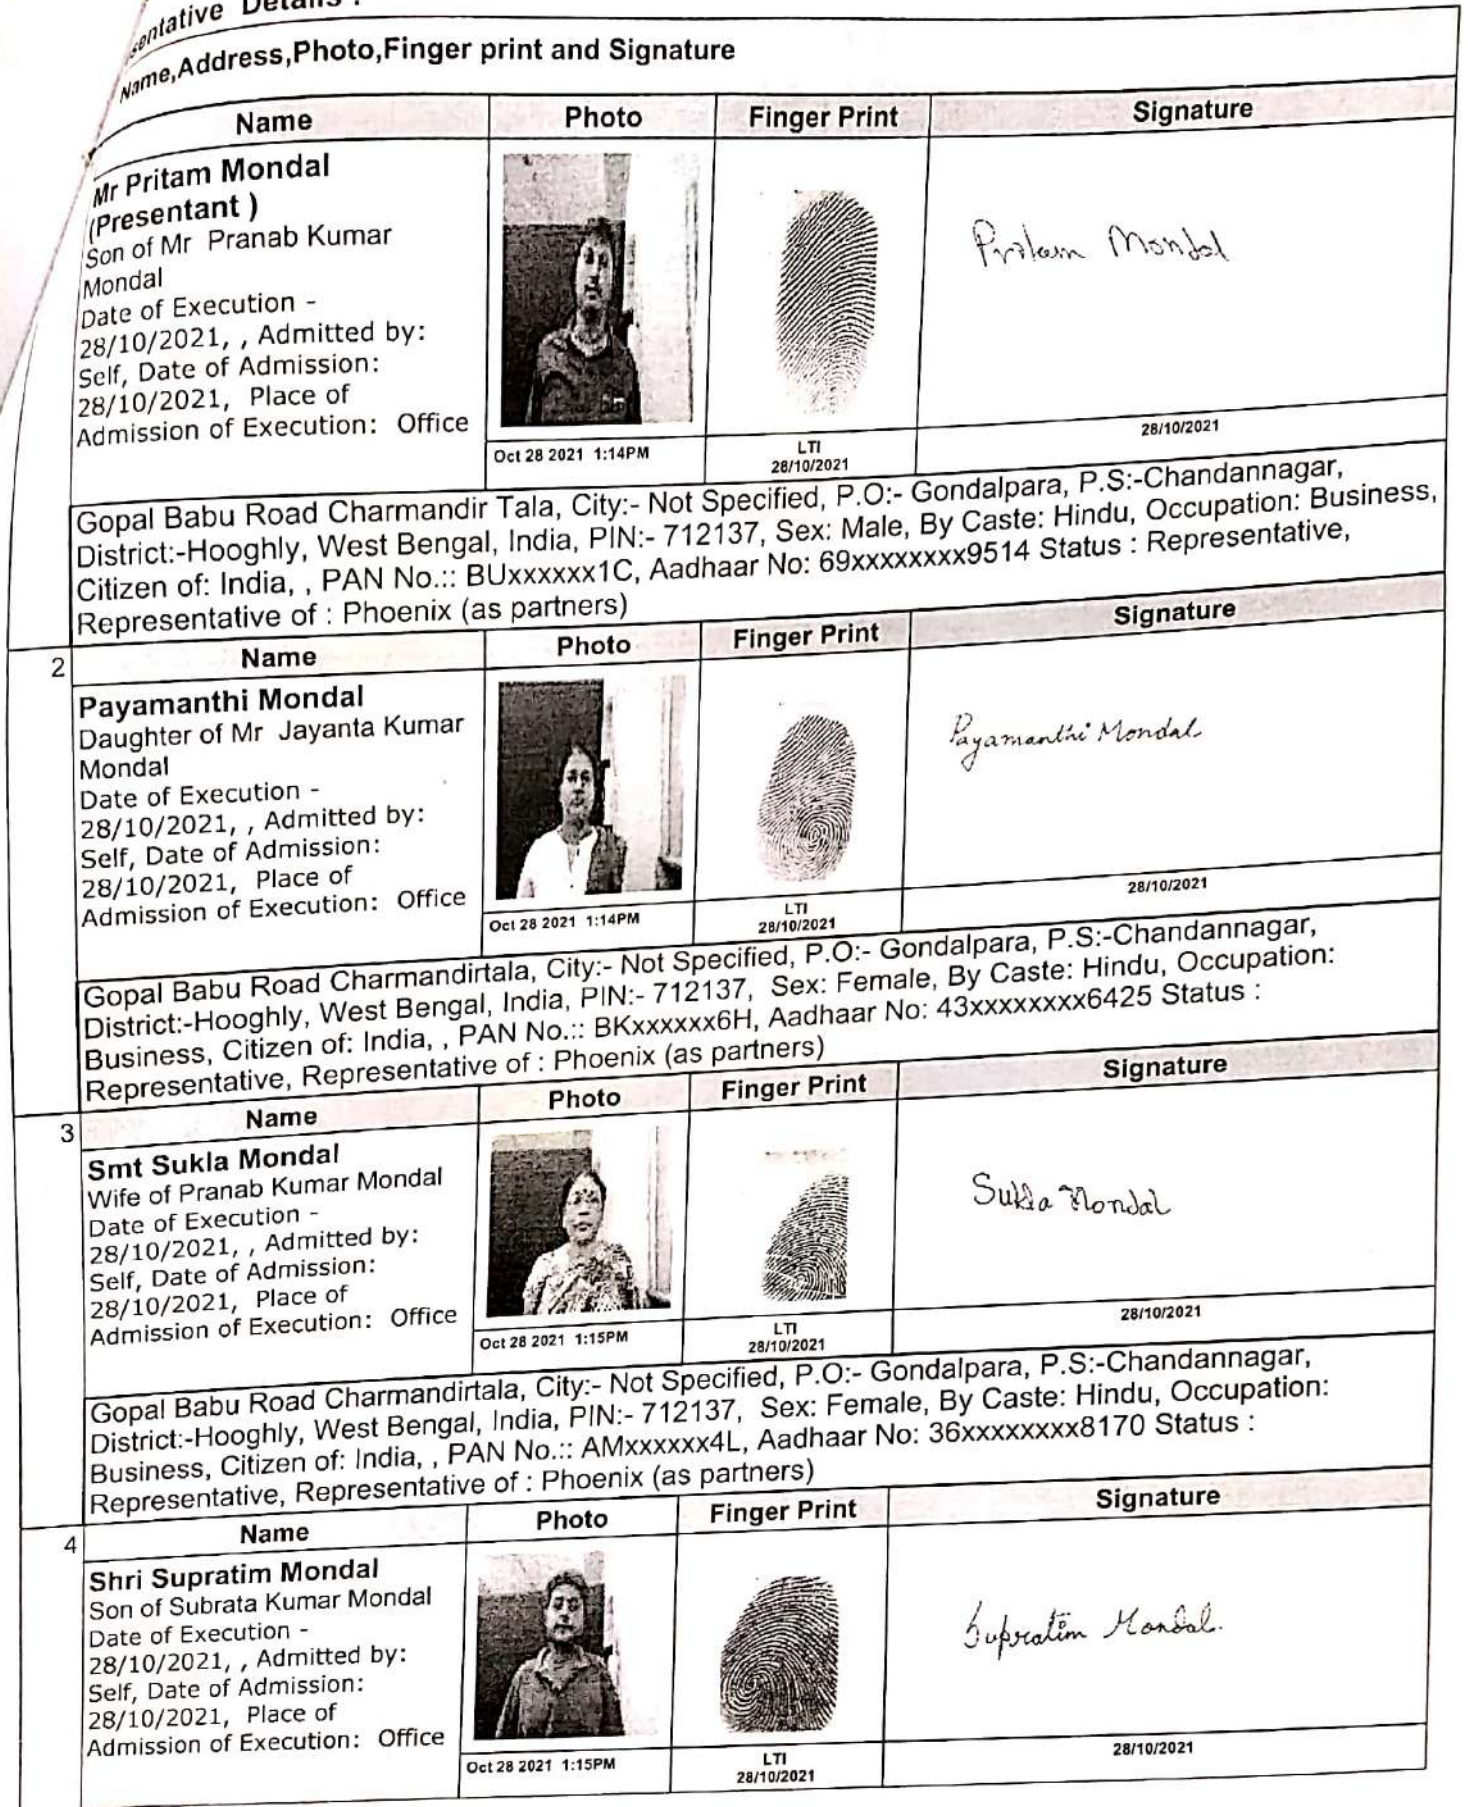 sentative Details :
Name,Address,Photo,Finger print and Signature
Name Photo Finger Print Signature
Mr Pritam Mondal
(Presentant )
Son of Mr Pranab Kumar
Mondal
Date of Execution -
28/10/2021, , Admitted by:
Self, Date of Admission:
28/10/2021, Place of
Admission of Execution: Office
Pritam Mondal
Oct 28 2021 1:14PM
LTI
28/10/2021
28/10/2021
Gopal Babu Road Charmandir Tala, City:- Not Specified, P.O:- Gondalpara, P.S:-Chandannagar,
District:-Hooghly, West Bengal, India, PIN:- 712137, Sex: Male, By Caste: Hindu, Occupation: Business,
Citizen of: India, , PAN No.:: BUxxxxxx1C, Aadhaar No: 69xxxxxxxx9514 Status : Representative,
Representative of : Phoenix (as partners)
2 Name Photo Finger Print Signature
Payamanthi Mondal
Daughter of Mr Jayanta Kumar
Mondal
Date of Execution -
28/10/2021, , Admitted by:
Self, Date of Admission:
28/10/2021, Place of
Admission of Execution: Office
Payamanthi Mondal
Oct 28 2021 1:14PM
LTI
28/10/2021
28/10/2021
Gopal Babu Road Charmandirtala, City:- Not Specified, P.O:- Gondalpara, P.S:-Chandannagar,
District:-Hooghly, West Bengal, India, PIN:- 712137, Sex: Female, By Caste: Hindu, Occupation:
Business, Citizen of: India, , PAN No.:: BKxxxxxx6H, Aadhaar No: 43xxxxxxxx6425 Status :
Representative, Representative of : Phoenix (as partners)
3 Name Photo Finger Print Signature
Smt Sukla Mondal
Wife of Pranab Kumar Mondal
Date of Execution -
28/10/2021, , Admitted by:
Self, Date of Admission:
28/10/2021, Place of
Admission of Execution: Office
Sukla Mondal
Oct 28 2021 1:15PM
LTI
28/10/2021
28/10/2021
Gopal Babu Road Charmandirtala, City:- Not Specified, P.O:- Gondalpara, P.S:-Chandannagar,
District:-Hooghly, West Bengal, India, PIN:- 712137, Sex: Female, By Caste: Hindu, Occupation:
Business, Citizen of: India, , PAN No.:: AMxxxxxx4L, Aadhaar No: 36xxxxxxxx8170 Status :
Representative, Representative of : Phoenix (as partners)
4 Name Photo Finger Print Signature
Shri Supratim Mondal
Son of Subrata Kumar Mondal
Date of Execution -
28/10/2021, , Admitted by:
Self, Date of Admission:
28/10/2021, Place of
Admission of Execution: Office
Supratim Mondal.
Oct 28 2021 1:15PM
LTI
28/10/2021
28/10/2021